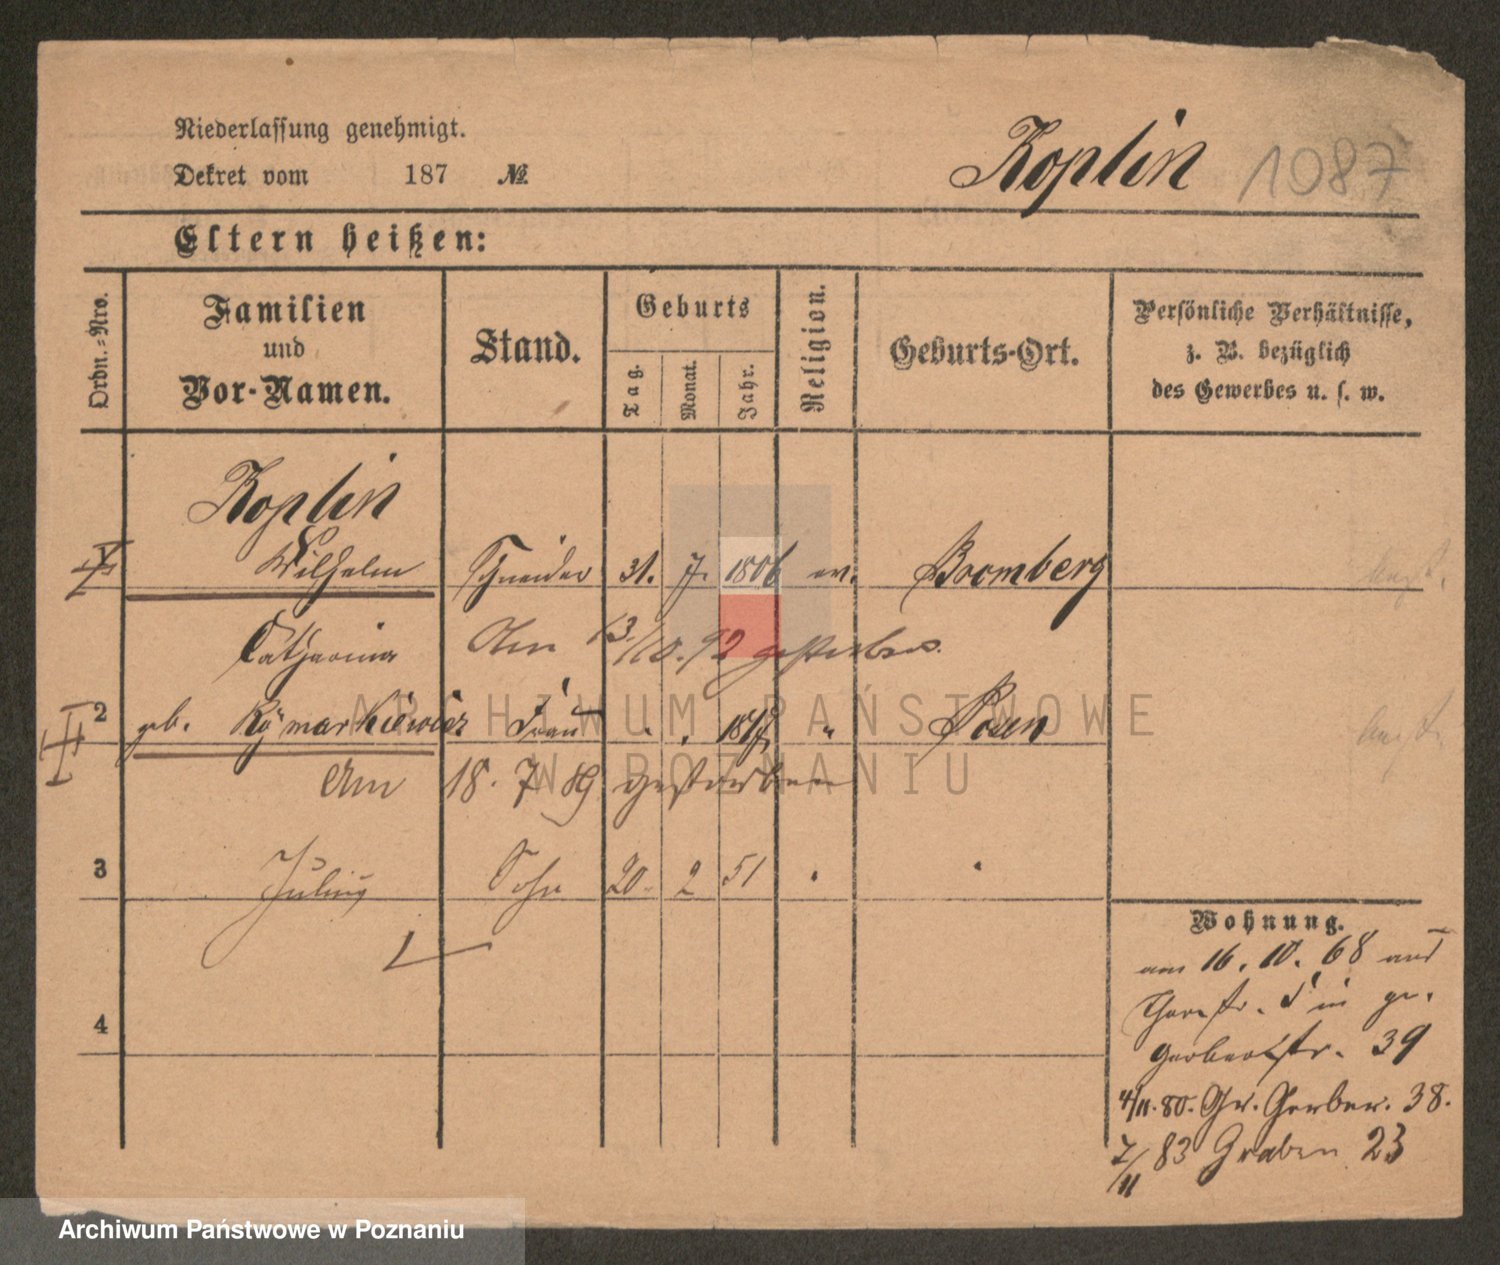 Niederlassung genehmigt.
Dekret vom 187 №
Koplin 1087
Eltern heißen:
Ordn.-Nro.
Familien und Vor-Namen.
Stand.
Geburts
Tag.
Monat.
Jahr.
Religion.
Geburts-Ort.
Persönliche Verhältnisse,
z. B. bezüglich
des Gewerbes u. s. w.
Koplin
Wilhelm Schneider 31. 7. 1806 ev. Bromberg
Catharina Am 13./10.92 gestorben.
2 geb. Rÿmarkiewicz Frau " " " Posen
Am 18. 7 89 gestorben
3 Julius Sohn 20. 2 51 " "
4
Wohnung.
am 16. 10. 68 aus
in gr.
Gerberstr. 39
4/11.80. Gr. Gerber. 38.
7/11 83 Graben 23
ARCHIWUM PAŃSTWOWE
W POZNANIU
Archiwum Państwowe w Poznaniu